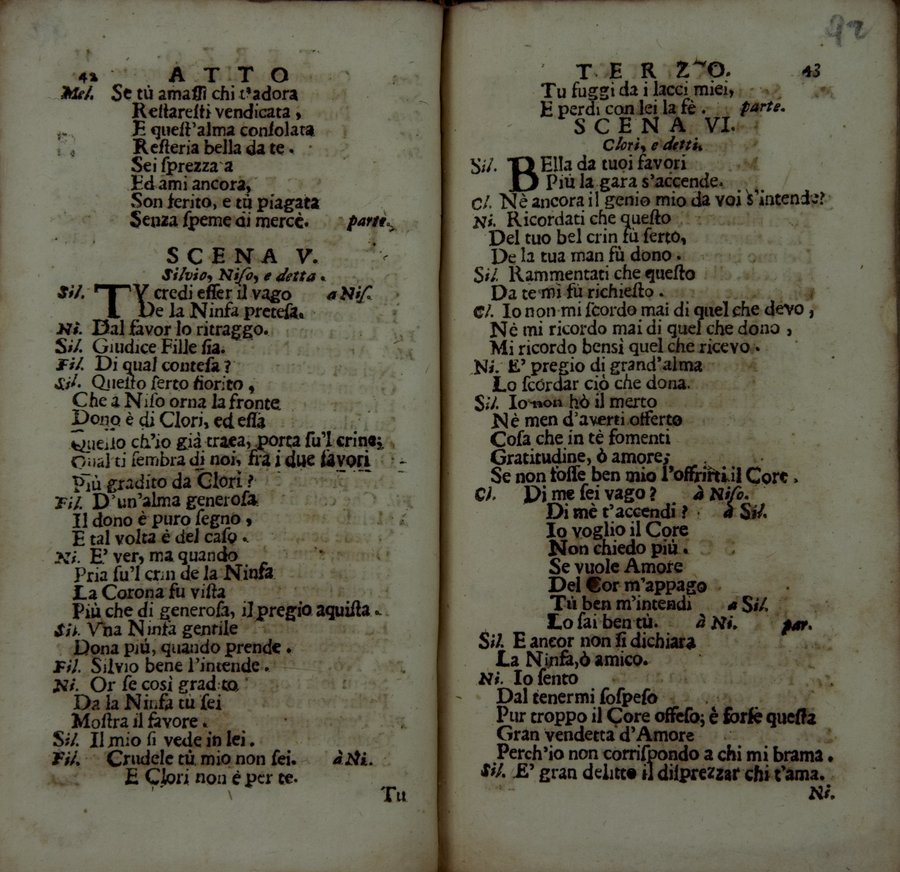 42 ATTO
Mel. Se tù amaſſi chi t'adora
Reſtareſti vendicata ,
E queſt'alma conſolata
Reſteria bella da te .
Sei ſprezza a
Ed ami ancora,
Son ferito, e tù piagata
Senza ſpeme di mercè. parte.
SCENA V.
Silvio, Niſo, e detta .
Sil. TV credi eſſer il vago a Niſ.
De la Ninfa preteſa.
Ni. Dal favor lo ritraggo.
Sil. Giudice Fille ſia.
Fil. Di qual conteſa ?
Sil. Queſto ſerto fiorito ,
Che à Niſo orna la fronte
Dono è di Clori, ed eſſa
Queſto ch'io già traea, porta ſu'l crine;
Qual ti ſembra di noi, fra i due favori
Più gradito da Clori ?
Fil. D'un'alma generoſa
Il dono è puro ſegno ,
E tal volta è del caſo .
Ni. E' ver, ma quando
Pria ſu'l crin de la Ninfa
La Corona fu viſta
Più che di generoſa, il pregio aquiſta .
Sil. Vna Ninfa gentile
Dona più, quando prende .
Fil. Silvio bene l'intende .
Ni. Or ſe così gradito
Da la Ninfa tù ſei
Moſtra il favore .
Sil. Il mio ſi vede in lei .
Fil. Crudele tù mio non ſei. à Ni.
E Clori non è per te.
Tu
92
TERZO. 43
Tu fuggi da i lacci miei,
E perdi con lei la fè . parte.
SCENA VI.
Clori, e detti.
Sil. BElla da tuoi favori
Più la gara s'accende.
Cl. Nè ancora il genio mio da voi s'intende?
Ni. Ricordati che queſto
Del tuo bel crin fù ſerto,
De la tua man fù dono .
Sil. Rammentati che queſto
Da te mi fù richieſto .
Cl. Io non mi ſcordo mai di quel che devo ,
Nè mi ricordo mai di quel che dono ,
Mi ricordo bensì quel che ricevo .
Ni. E' pregio di grand'alma
Lo ſcordar ciò che dona.
Sil. Io non hò il merto
Nè men d'averti offerto
Coſa che in tè fomenti
Gratitudine, ò amore;
Se non foſſe ben mio l'offrirti il Core .
Cl. Di me ſei vago ? à Niſo.
Di mè t'accendi ? à Sil.
Io voglio il Core
Non chiedo più .
Se vuole Amore
Del Cor m'appago
Tù ben m'intendi a Sil.
Lo ſai ben tù. à Ni. par.
Sil. E ancor non ſi dichiara
La Ninfa, ò amico.
Ni. Io ſento
Dal tenermi ſoſpeſo
Pur troppo il Core offeſo; è forſe queſta
Gran vendetta d'Amore
Perch'io non corriſpondo a chi mi brama .
Sil. E' gran delitto il diſprezzar chi t'ama.
Ni.